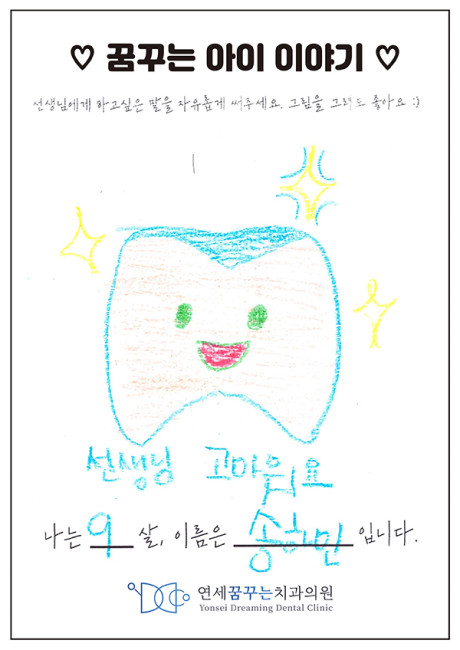 ♡ 꿈꾸는 아이 이야기 ♡
선생님에게 하고싶은 말을 자유롭게 써주세요. 그림을 그려도 좋아요 :)
선생님 고마워요
나는 9 살, 이름은 송해민 입니다.
연세꿈꾸는치과의원
Yonsei Dreaming Dental Clinic